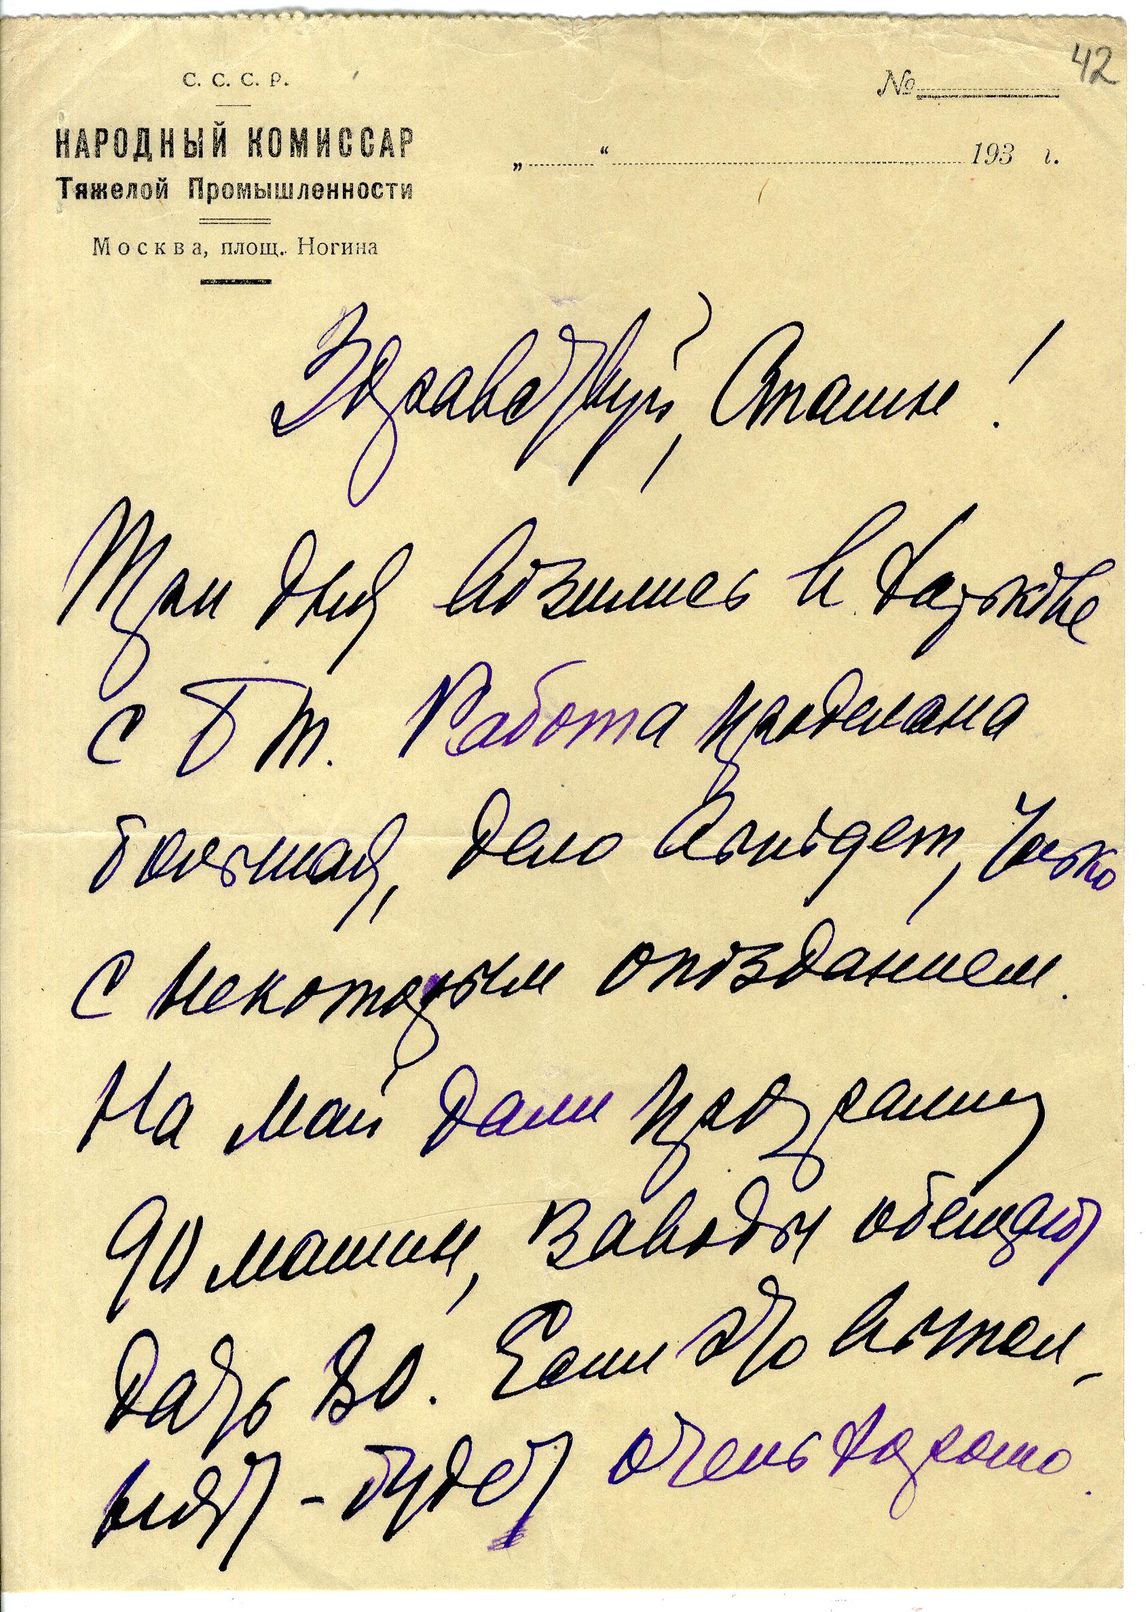 42
С. С. С. Р.
№
НАРОДНЫЙ КОМИССАР
Тяжелой Промышленности
„ “ 193 г.
Москва, площ. Ногина
Здравствуй, Сталин!
Три дня возились в Харькове
с БТ. Работа проделана
большая, дело выйдет, только
с некоторым опозданием.
На май дали программу
90 машин, заводы обещают
дать 80. Если это выпол-
нят – будет очень хорошо.